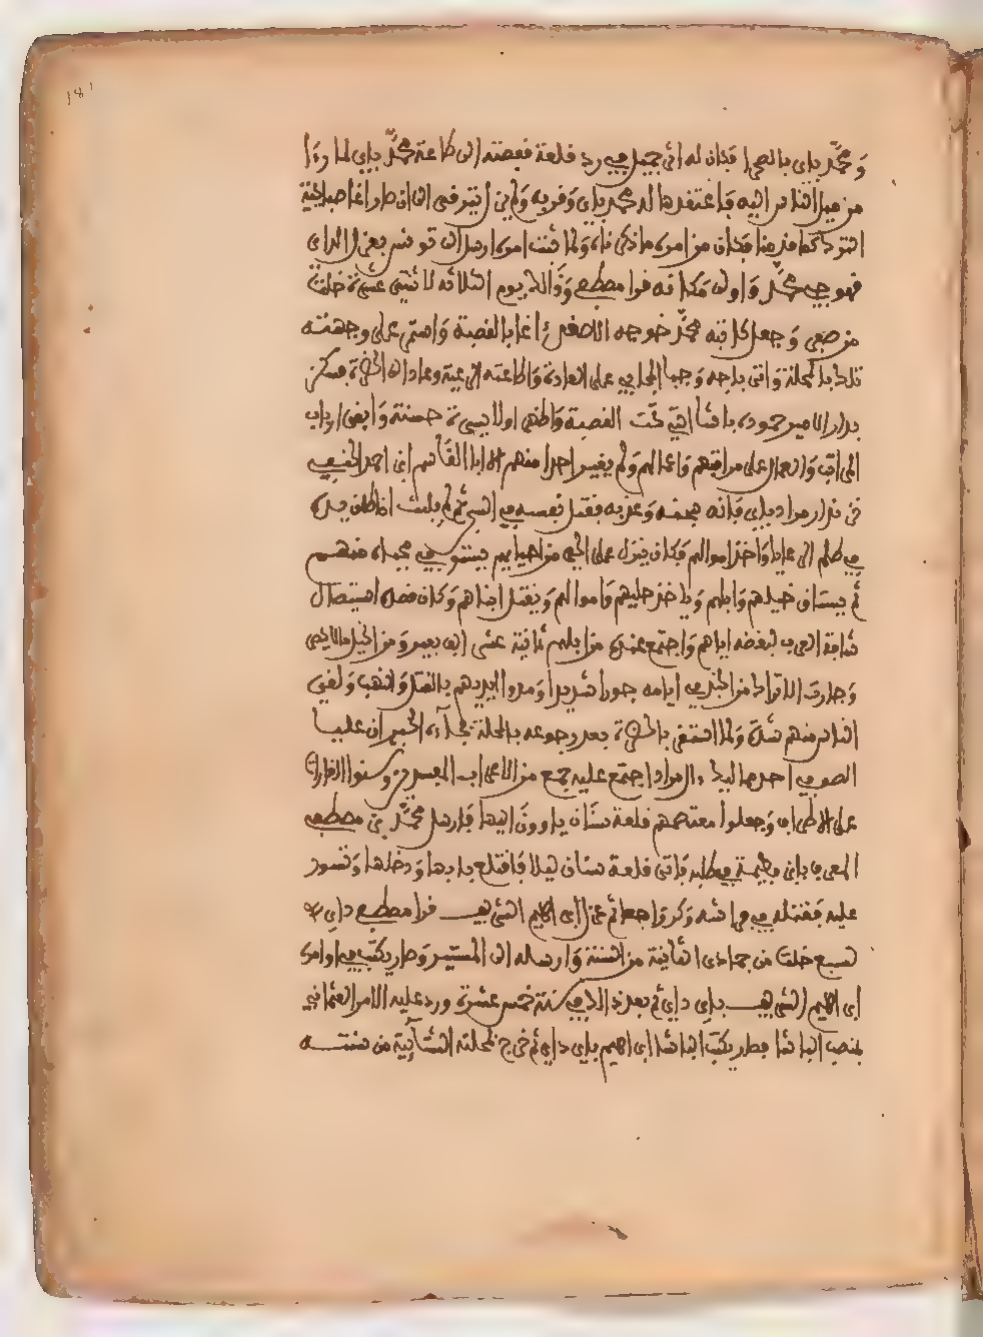 ومحمد باي بالصحرا فكان له اثر جميل في رد قلعة قفصة الى طاعة محمد باي لما رءا
من ميل الناس اليه فاعتقدها له محمد باي وقربه ولم يزل يترقى الى ان صار اغا صبايحية
الترك كما قدمنا فكان من امره ما ذكرناه ولما ثبت امره ارسل الى تونس بعزل الداي
قهوجي محمد واولى مكانه قرا مصطفى وذلك يوم الثلاثا لاثنتي عشرة خلت
من صفر وجعل كاتبه محمد خوجه الاصفر اغا بالقصبة واستمر على وجهته
تلك بالمحلة واتى باجه وجبا المجابي على العادة واطاعته الرعية وعاد الى الحضرة فسكن
بدار الامير حموده باشا التي تحت القصبة واظهر اولا سيرة حسنة وابقى ارباب
المراتب والعمال على مراتبهم واعمالهم ولم يغير احدا منهم الا ابا القاسم ابن احمد الحنفي
خزندار مراد باي فانه سجنه وعذبه فقتل نفسه في السجن ثم لم يلبث ان اطلق يده
في ظلم الرعايا واخذ اموالهم فكان ينزل على الحي من احيايهم فيستوفي مجباه منهم
ثم يستاق خيلهم وابلهم وياخذ حليهم واموالهم ويقتل ابناهم وكان قصده استيصال
شافة العرب لبغضه اياهم واجتمع عنده من ابلهم ثمانية عشر الف بعير ومن الخيل ما لا يحصى
وجارت الاتراك من الجند في ايامه جورا شديدا ومدوا ايديهم بالقتل والنهب ولقي
الناس منهم شدة ولما استقر بالحضرة بعد رجوعه بالمحلة جاءه الخبر ان عليا
الصوفي احد مماليك ءال مراد اجتمع عليه جمع من الاعراب المفسدين وشنوا الغارات
على الاطراف وجعلوا معتصمهم قلعة سنان ياوون اليها فارسل محمد بن مصطفى
المعروف بابن فطيمة في طلبه فاتى قلعة سنان ليلا فاقتلع بابها ودخلها وتسور
عليه فقتله في فراشه وكر راجعا ثم عزل ابراهيم الشريف قرا مصطفى داي
لسبع خلت من جمادى الثانية من السنة وارسله الى المنستير وصار يكتب في اوامره
ابراهيم الشريف باي داي ثم بعد ذلك في سنة خمس عشرة ورد عليه الامر العثماني
بمنصب الباشا فصار يكتب الباشا ابراهيم باي داي ثم خرج بمحلته الشتائية من سنته